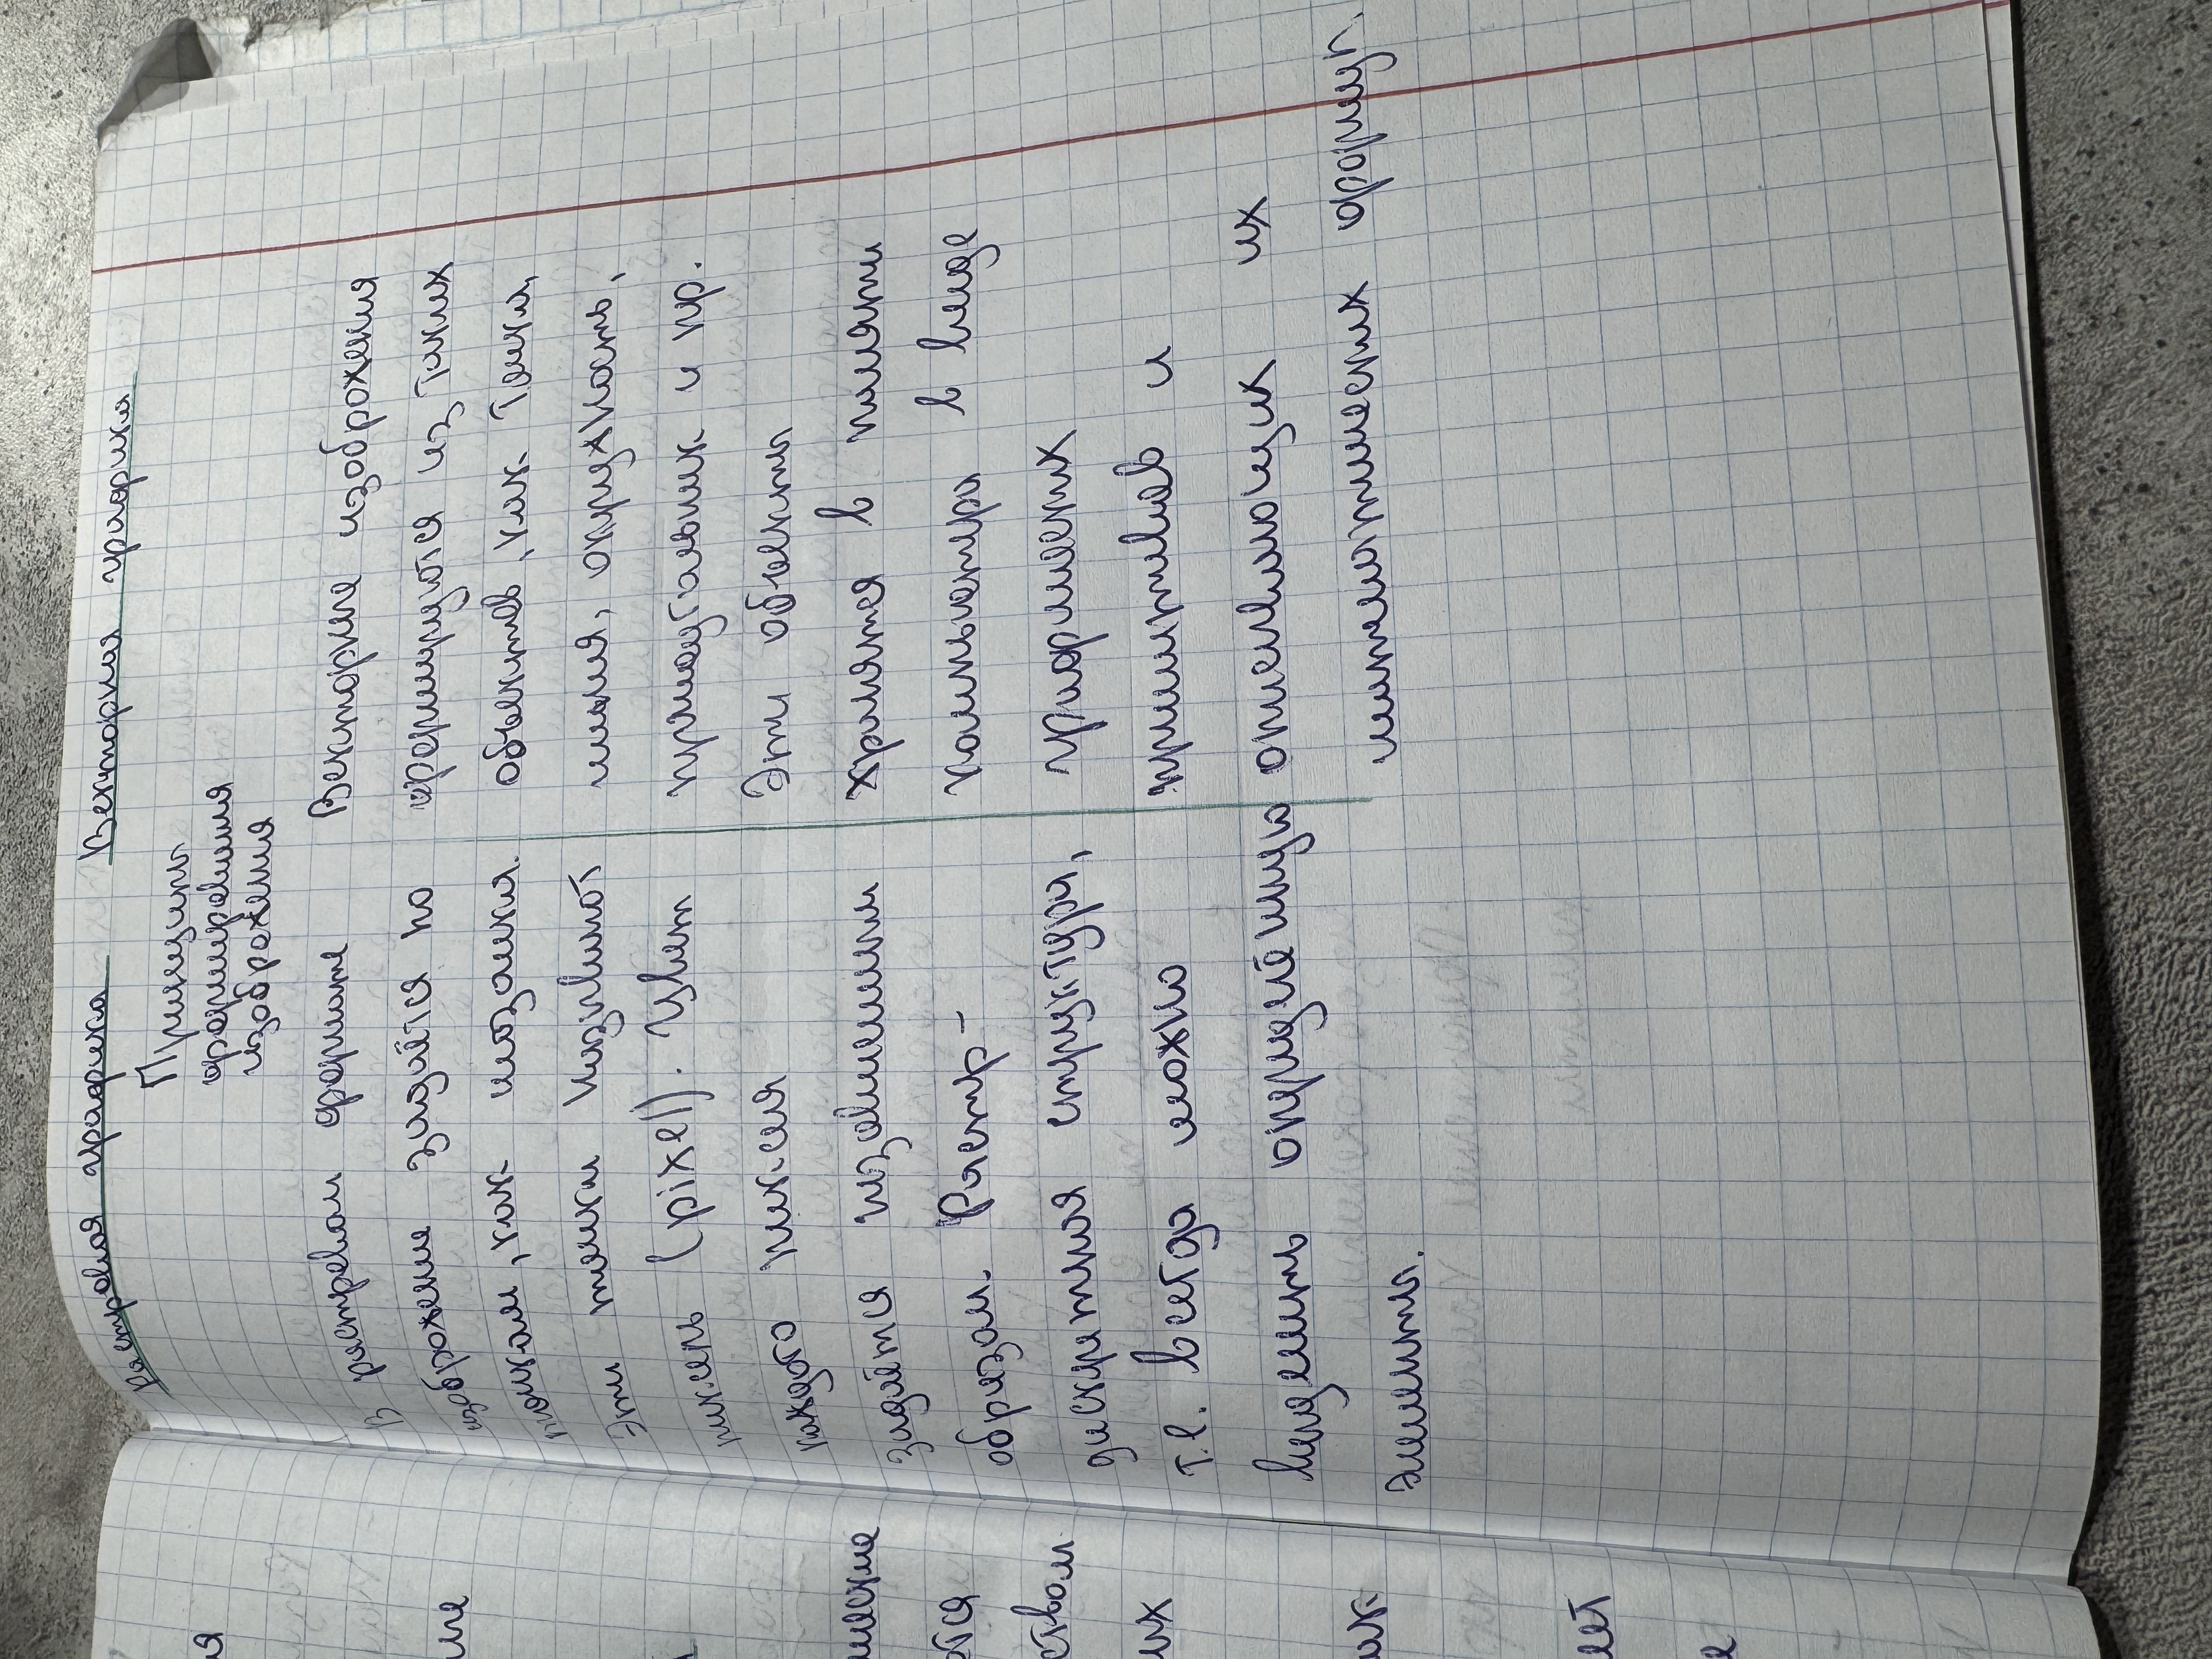 Растровая графика Векторная графика
Принципы
формирования
изображения
В растровом формате
изображение задаётся по
точкам, как мозаика.
Эти точки называют
пиксель (pixel). Цвет
каждого пикселя
задаётся независимым
образом. Растр -
дискретная структура,
т.е. всегда можно
выделить
элементы.
Векторные изображения
формируются из таких
объектов, как точка,
линия, окружность,
прямоугольник и пр.
Эти объекты
хранятся в памяти
компьютера в виде
графических
примитивов и
описывающих их
математических формул.
ия
ые
ческие
ются
ством
ых
ник
ает
е